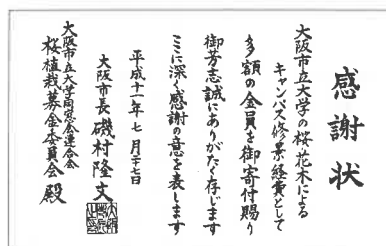 感謝状
大阪市立大学の桜・花木による
キャンパス修景経費として
多額の金員を御寄付賜り
御芳志誠にありがたく存じます
ここに深く感謝の意を表します
平成十一年七月二十七日
大阪市長 磯村隆文
大阪市立大学同窓会連合会
桜植栽募金委員会 殿